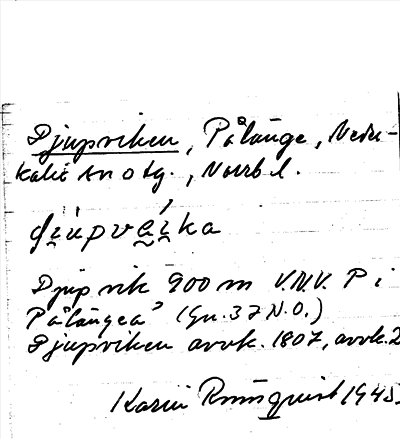 Djupviken, Pålänge, Neder-
kalix sn o tg., Norrb l.
Djupvik 900 m V.N.V. P i
Pålänge" (Gn. 37 N.O.)
Djupviken avvk. 1807, avvk. 2
Karin Rönnquist 1945